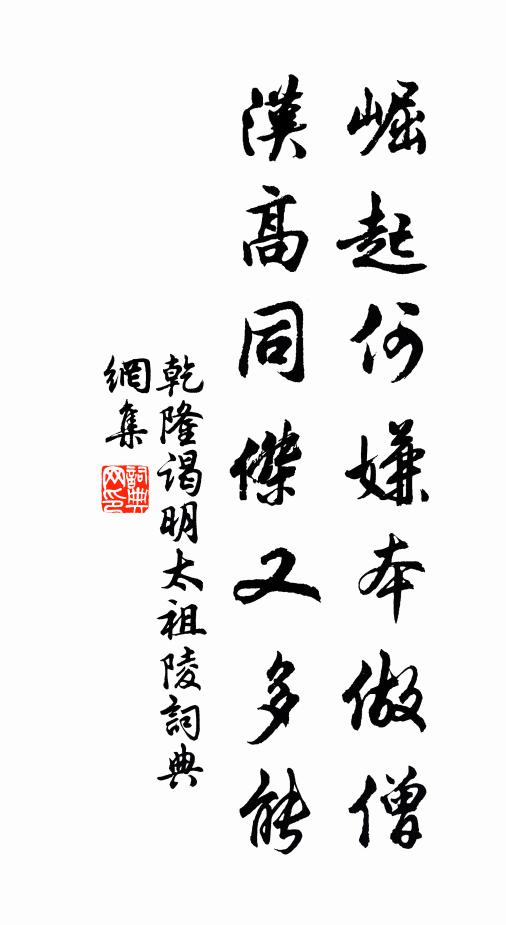 崛起何嫌本做僧
漢高同傑又多能
乾隆謁明太祖陵詞典
網集
詞典網印